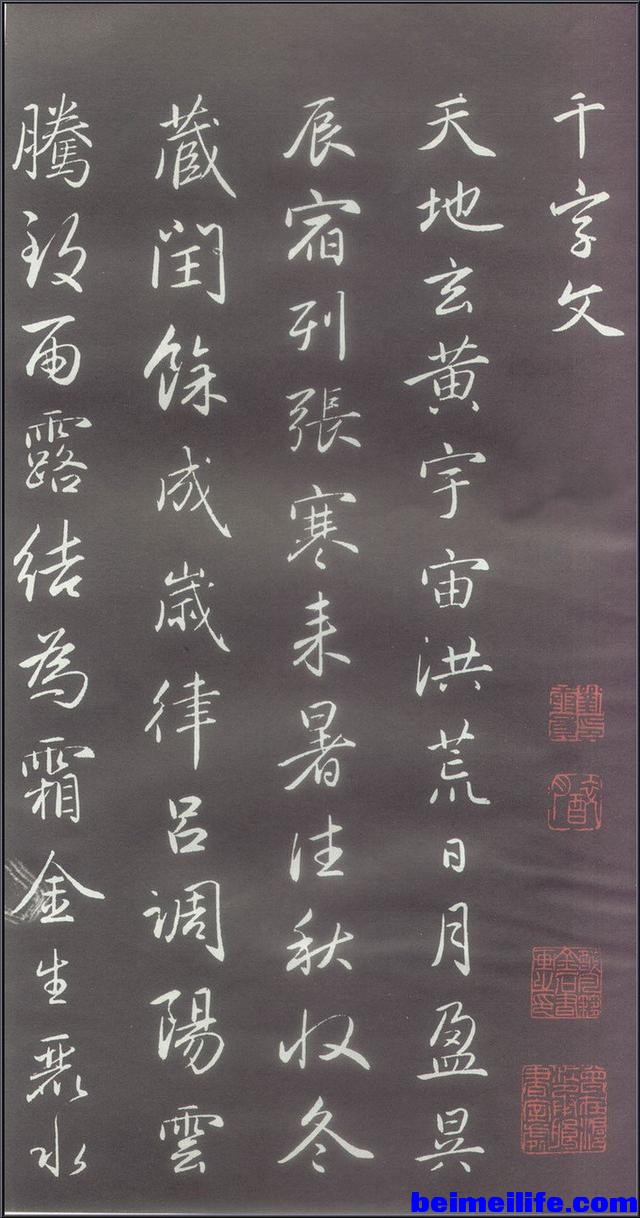 千字文
天地玄黄宇宙洪荒日月盈昃
辰宿列張寒来暑往秋收冬
蔵閏餘成歳律呂調陽雲
騰致雨露結為霜金生麗水
beimeilife.com